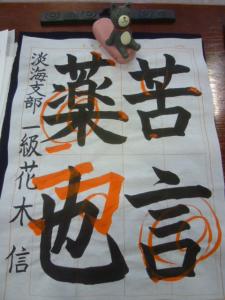 苦言
薬也
淡海支部 一級 花木信